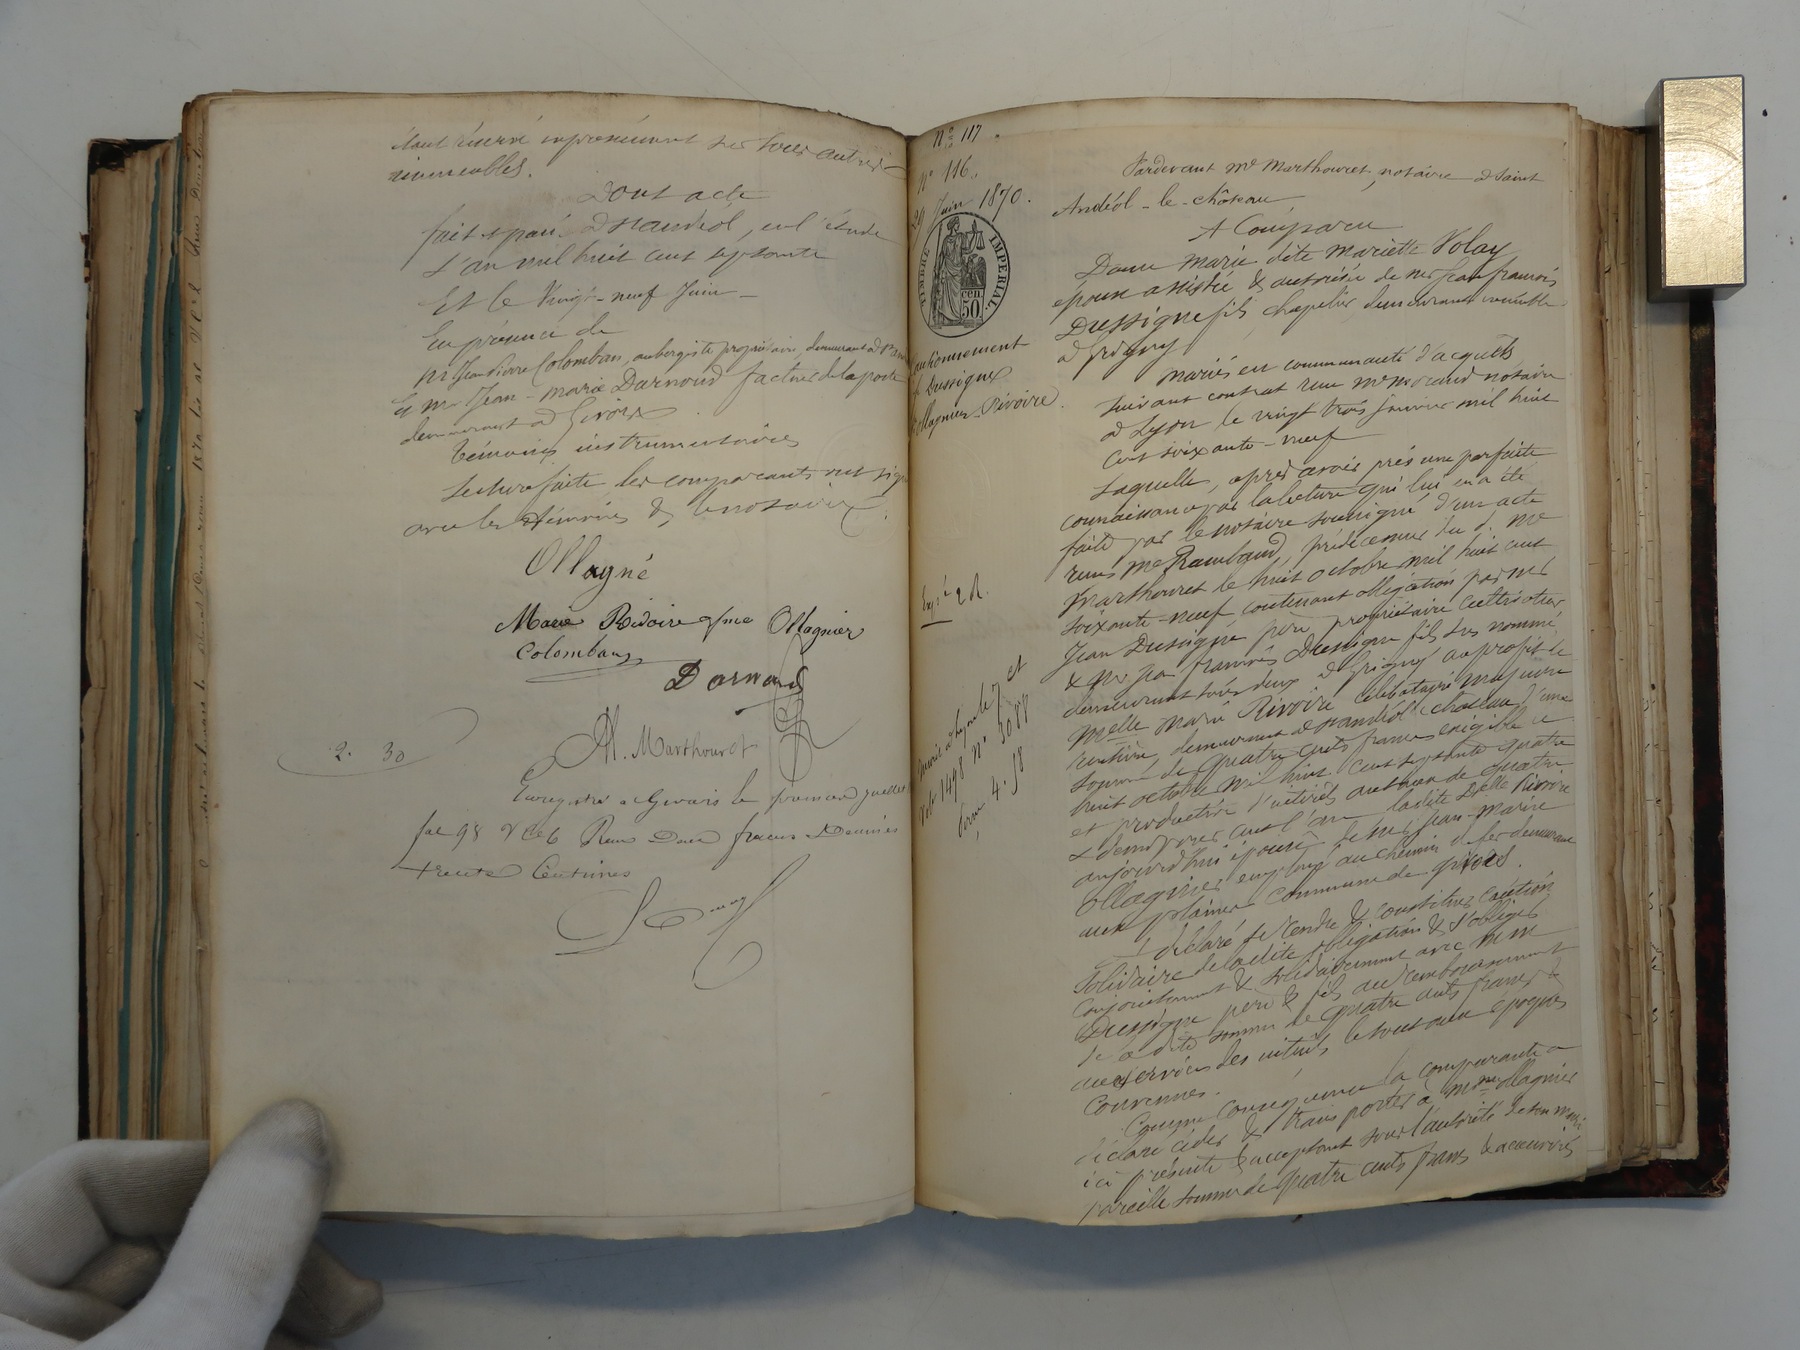 étant réservé expressément sur tous autres
immeubles.
Dont acte
fait & passé à St andéol, en l'étude
L'an mil huit cent septante
Et le Vingt-neuf Juin
En présence de
Mr Jean Pierre Colomban, aubergiste propriétaire, demeurant à
Et mr Jean-marie Darnoud facteur de la poste
demeurant à Givors
témoins instrumentaires
Lecture faite les comparants ont signé
avec les témoins & le notaire.
Ollagné
Marie Rivoire fme Ollagnier
Colomban
Darnoud
M. Marthouret
2. 30
Enregistré à Givors le premier juillet
fol 98 V Ce 6 Reçu Deux francs décimes
trente Centimes
N° 117
N° 116.
29 Juin 1870.
TIMBRE IMPERIAL
50 cen.
Cautionnement
Dussigne
Ollagnier-Rivoire
Exp. 2 R.
7 et
Vol. 1498 N° 3088
4. 58
Pardevant Me Marthouret, notaire à Saint
Andéol-le-château
A Comparu
Dame Marie dite Mariette Volay
épouse assistée & autorisée de mr Jean françois
Dussigne fils, chapelier, demeurant ensemble
à Grigny
Mariés en communauté d'acquêts
suivant contrat reçu Me notaire
à Lyon le vingt trois Janvier mil huit
cent soixante-neuf
Laquelle, après avoir pris une parfaite
connaissance par la lecture qui lui en a été
faite par le notaire soussigné d'un acte
reçu Me Rambaud, prédécesseur du d. Me
Marthouret le huit octobre mil huit cent
soixante-neuf, contenant obligation par mr
Jean Dussigne père propriétaire cultivateur
& mr jean françois Dussigne fils sus nommé,
demeurant tous deux à Grigny au profit de
Melle Marie Rivoire célibataire majeure
rentière, demeurant à St andéol le château d'une
somme de quatre cents francs exigible le
huit octobre mil huit cent septante quatre
et productive d'intérêts au taux de quatre
& demi pour cent l'an ladite Delle Rivoire
aujourd'hui épouse de mr Jean-Marie
Ollagnier employé au chemin de fer demeurant
aux plaines commune de Givors.
A déclaré se rendre & constituer caution
solidaire de la dite obligation & s'obliger
conjointement & solidairement avec MM
Dussigne père & fils au remboursement
de la dite somme de quatre cents francs &
au service des intérêts le tout aux époques
convenues.
Comme conséquence la comparante a
déclaré céder & transporter à Mme Ollagnier
ici présente & acceptant sous l'autorité de son mari
pareille somme de quatre cents francs & accessoires